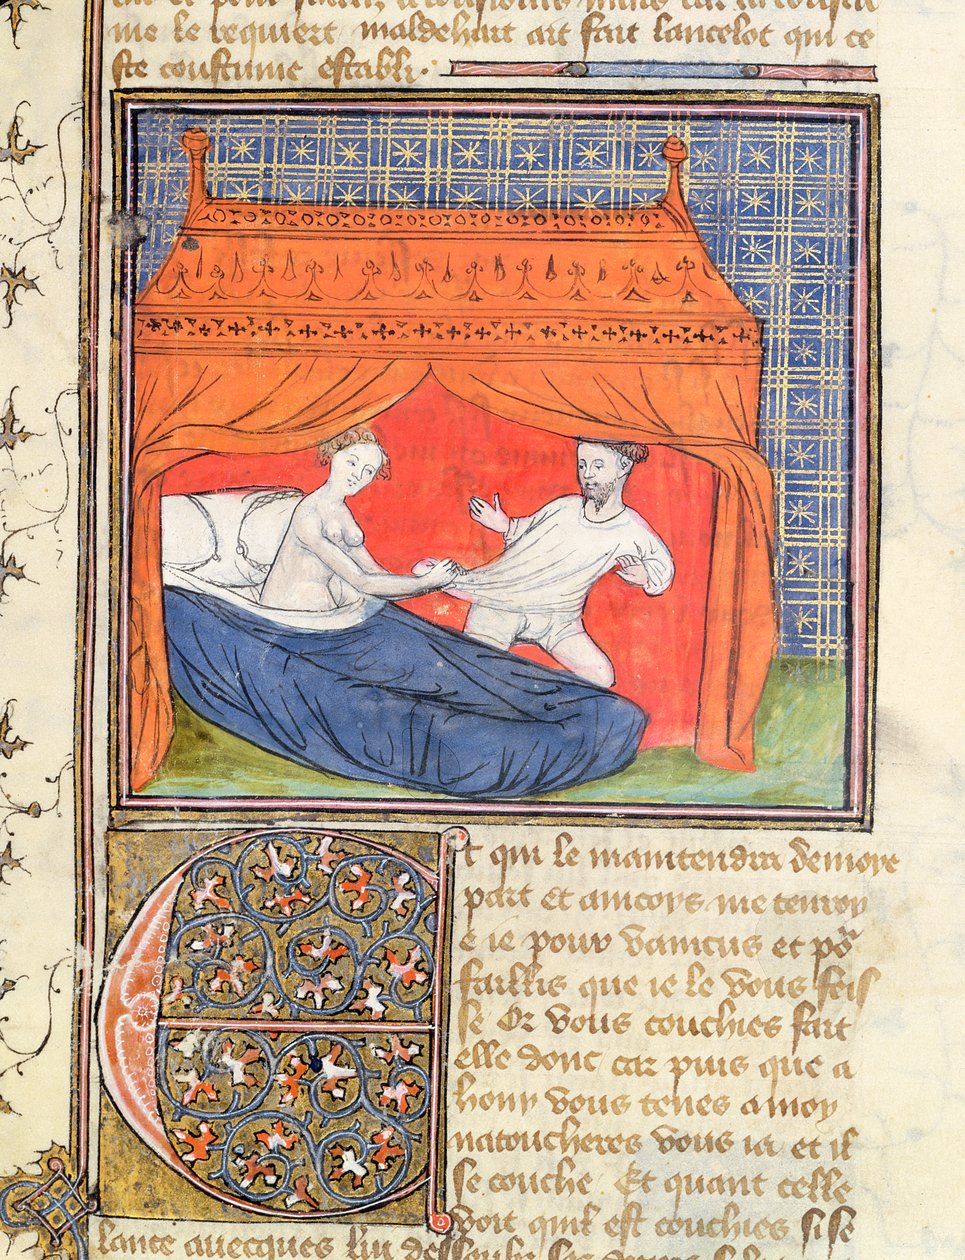 me le requiert maldehait ait fait lancelot qui ce
ste coustume establi
Et qui le maintendra demoye
part et aincoys me renvoy
e ie pour vaincus et por
faillis que ie le vous feis
se Or vous couchies fait
elle donc car puis que a
hony vous tenes a moy
natoucheres vous ia et il
se couche Et quant celle
voit quil est couchies si se
lance avecques lui dessoubz les